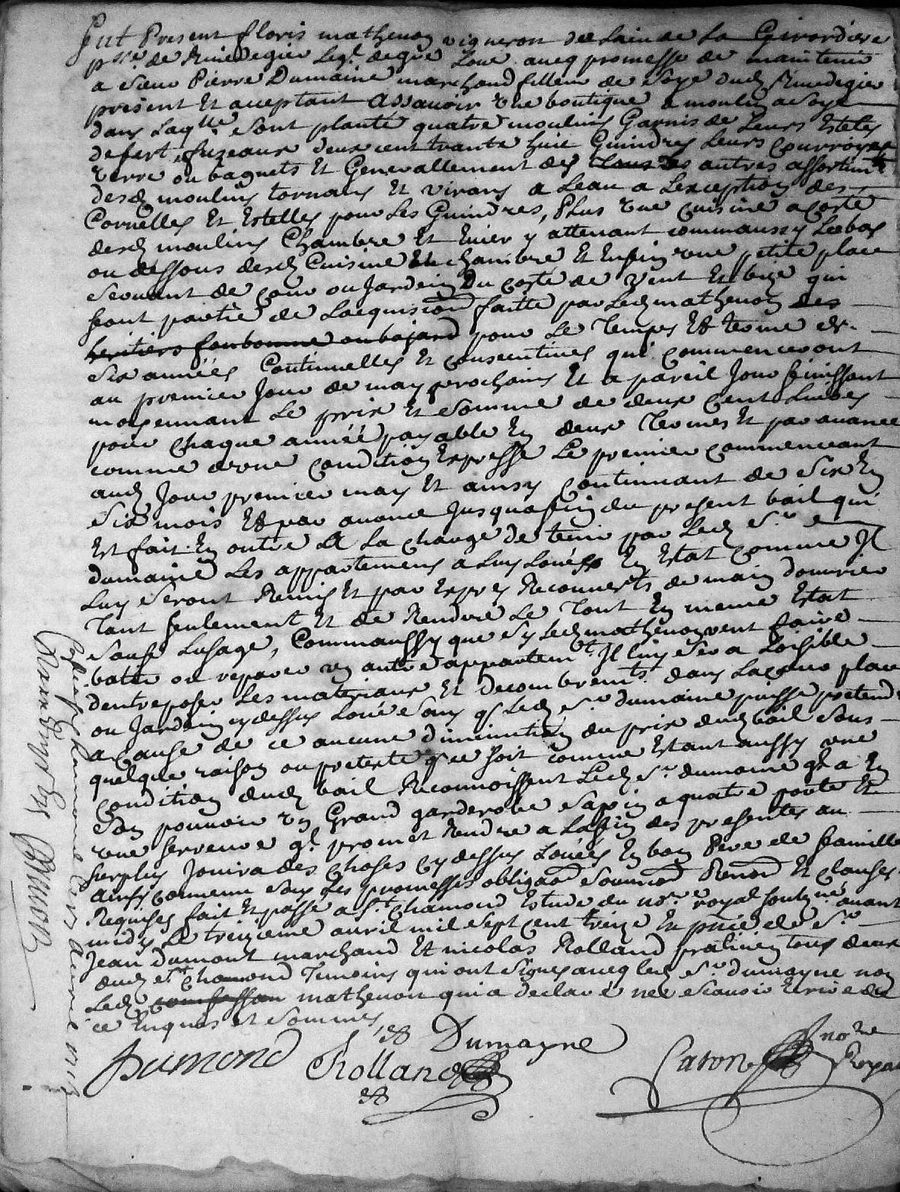 Fut Present floris mathenon vigneron de la Girordiere
psse de Rivedegier Leql de gre Loue avec promesse de maintenir
a sieur Pierre Dumaine marchand filleur de soye dud Rivedegier
present Et aceptant assavoir une boutique a moulin a soye
dans Laqlle sont plante quatre moulins Garnis de Leurs Estelles
de fert, fuzeaux deux cent trante huit Guindres Leurs Courroyes
verre ou baguets Et Generallement des tous les autres assortim
desd moulins tornans Et virans a Leau a Lexception des
Cornelles Et Estelles pour Les Guindres, Plus une Cuisine a coste
desd moulins Chambre Et Enier y attenant commaussy Le bas
ou dessous desd Cuisine Et chambre Et Enfin une petite place
servant de cour ou Jardein du coste de vent Et bize qui
font partie de Lacquision faitte par Led mathenon des
heritiers fonbonne ou bajard pour Le Temps Et terme de
six années Continuelles Et consecutives qui commenceront
au premier Jour de may prochain Et a pareil Jour finissant
moyennant Le prix Et somme de deux cent Livres
pour chaque année payable En deux Termes Et par avance
comme dune condition Expresse Le premier commenceant
aud Jour premier may Et ainsy continuant de six En
six mois Et par avance Jusqua fin du present bail qui
Est fait En outre A La charge de tenir par Led Sr
dumaine Les appartemens a Luy Loués En Estat comme Il
Luy seront Remis Et par Expres Recouverts de main douvrier
Tant seulement Et de Rendre Le Tout En meme Estat
sauf Lusage, Commaussy que sy Led mathenon veut faire
batir ou reparer un autre appartemt Il luy sera Loisible
dentreposer Les materiaux Et decombrements dans La cour place
ou Jardein cy dessus Loué sans q Led Sr dumaine puisse pretendre
a Cause de ce aucune diminution du prix dud bail sous
quelque raison ou pretexte q ce soit comme Etant aussy une
condition dud bail Reconnoissent Led Sr dumaine q a En
son pouvoir un Grand garderobe sapin a quatre porte Et
une serveure ql promet Rendre a La fin des presentes au
surplus Jouira des choses cy dessus Louées En bon Pere de famille
ainsy convenu sous Les promesses obligaon soumon Renon Et clauses
Requises fait Et passe a St chamond Etude du nore royal soubzné avant
midy Le treizieme avril mil sept cent treize En pnce de Sr
Jean dumont marchand Et nicolas Rolland praticien tous deux
dud St chamond Temoins qui ont signes avec led Sr dumayne non
Led mathenon qui a declaré ne scavoir ecrire de
ce Enquis et sommes
Dumond
Rolland
Dumayne
Caron nore
Royal